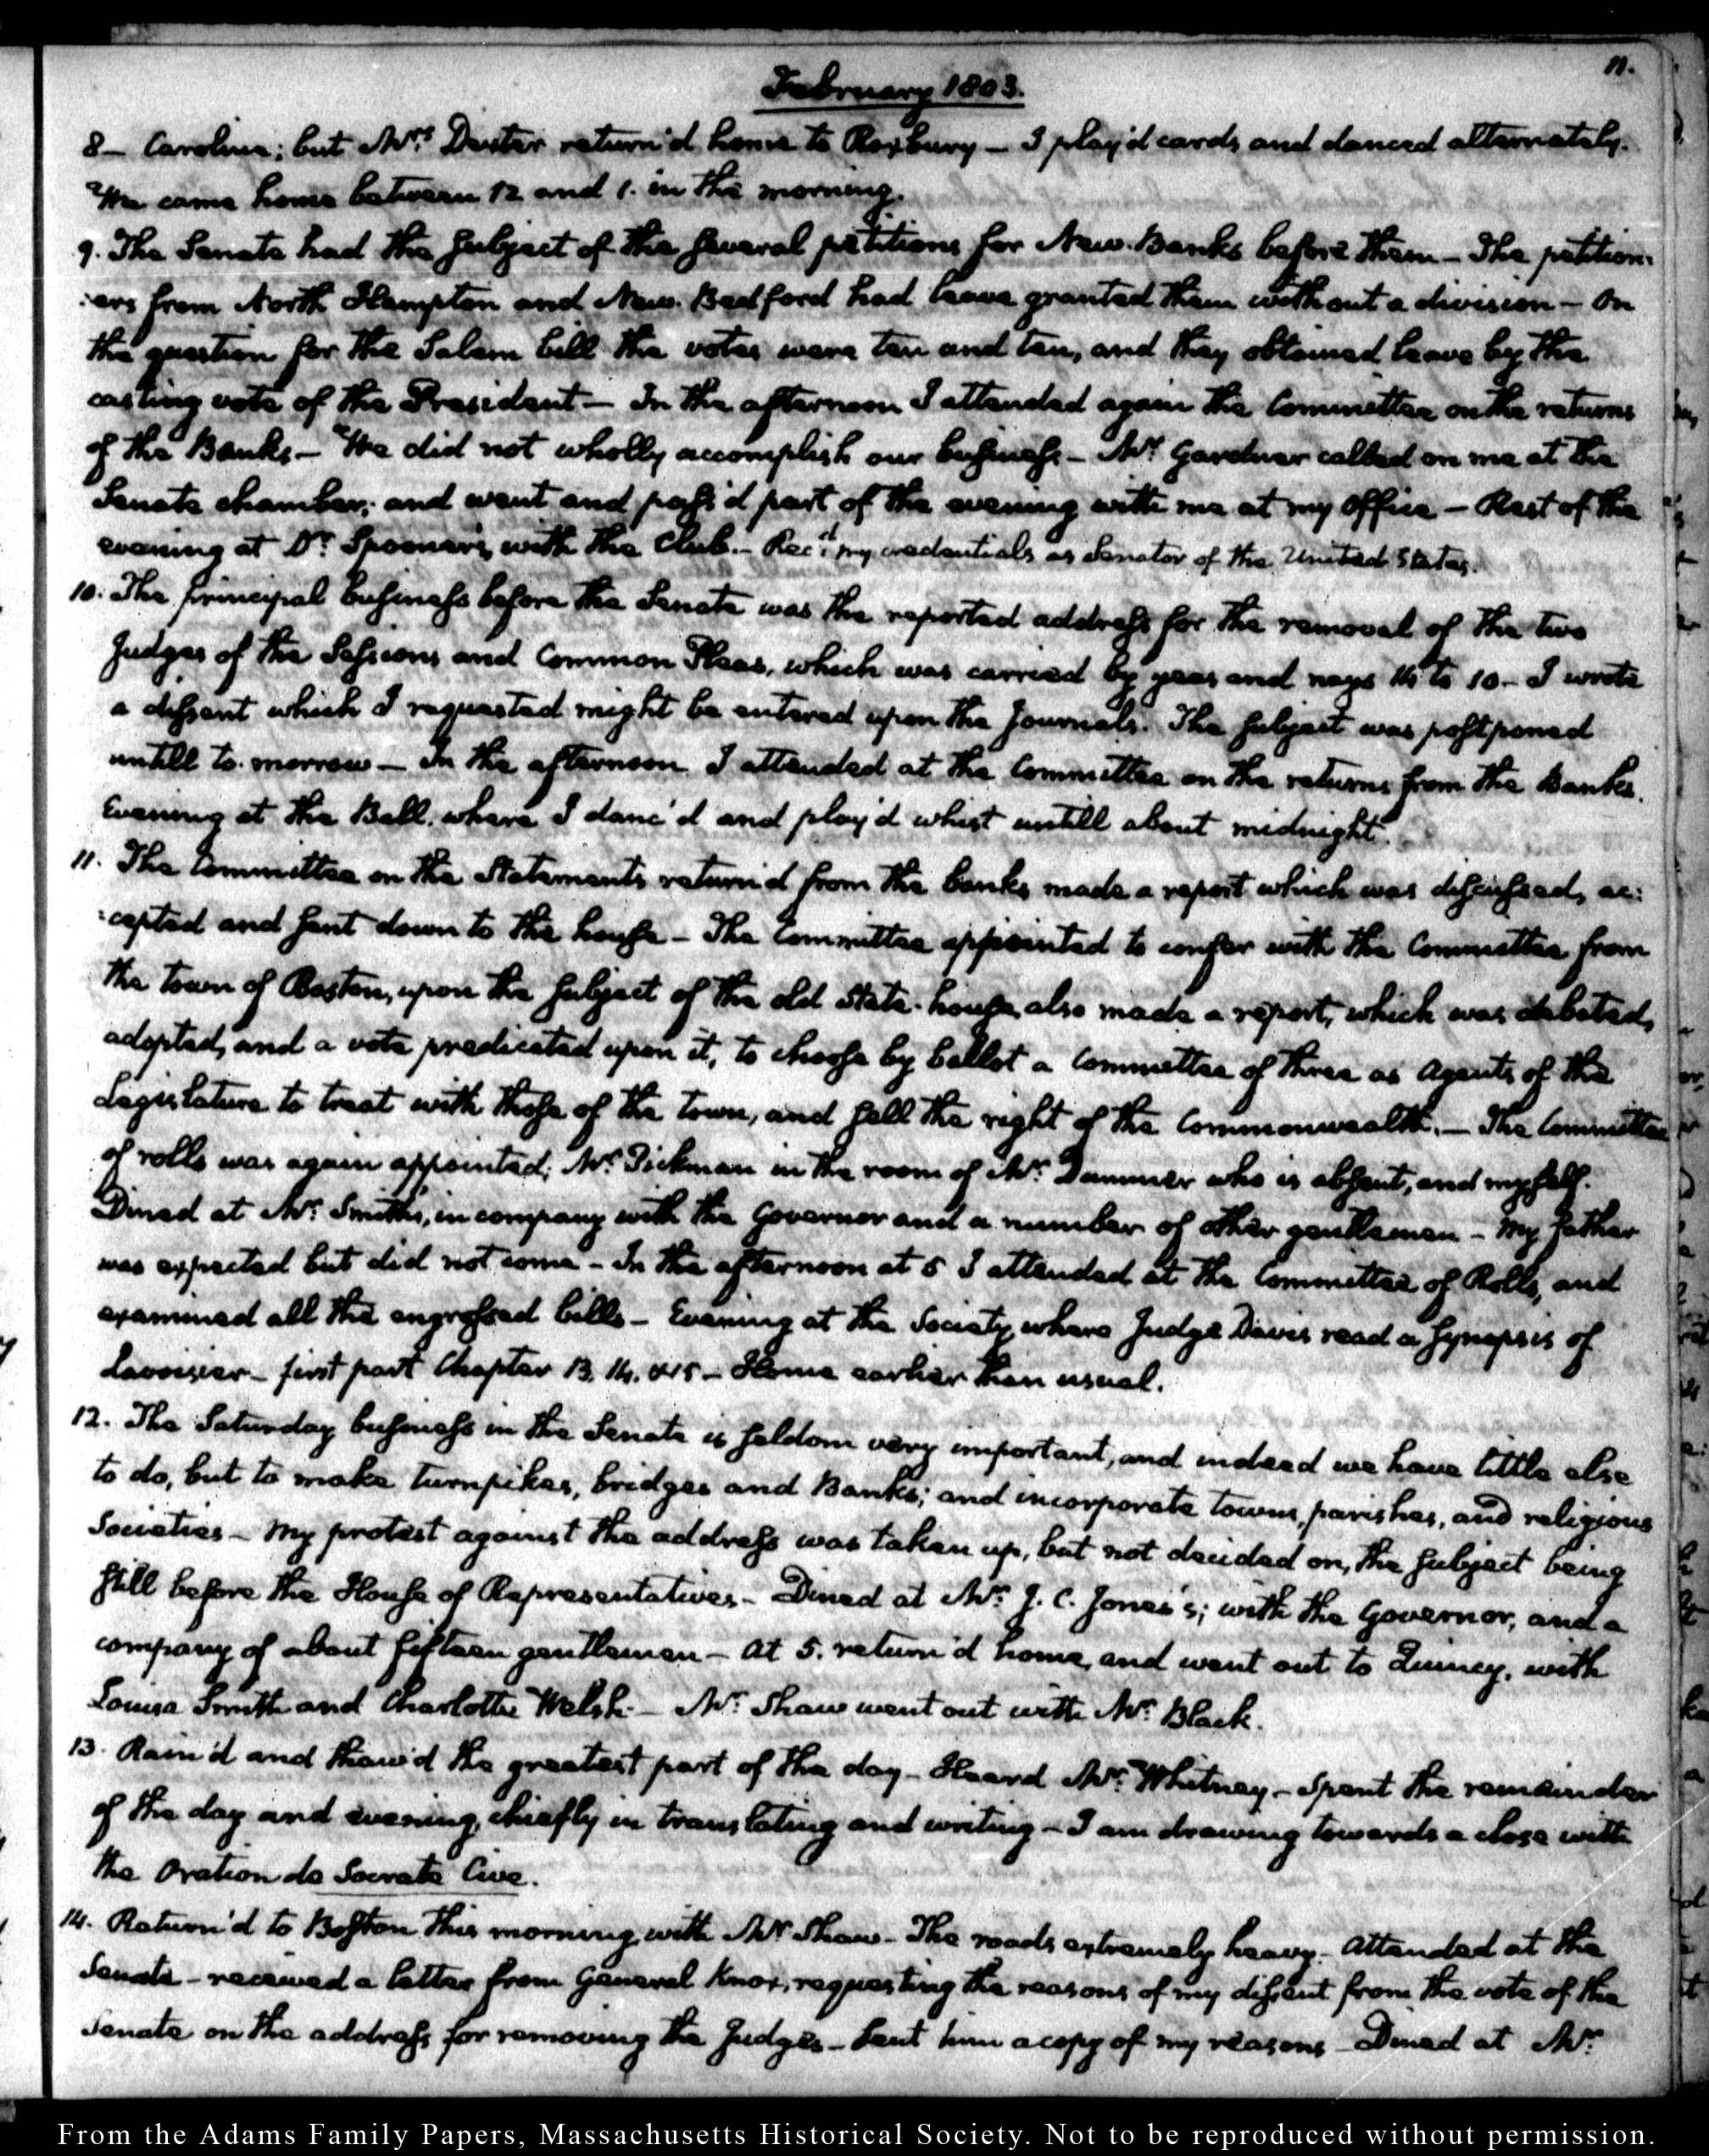 11.
February 1803.
8— Caroline; but Mrs. Dexter return'd home to Roxbury — I play'd cards and danced alternately.
We came home between 12 and 1. in the morning.
9. The Senate had the subject of the several petitions for New Banks before them — The petition:
:ers from North Hampton and New-Bedford had leave granted them without a division — On
the question for the Salem bill the votes were ten and ten, and they obtained leave by the
casting vote of the President — In the afternoon I attended again the Committee on the returns
of the Banks — We did not wholly accomplish our business — Mr. Gardner called on me at the
Senate chamber; and went and pass'd part of the evening with me at my office — Rest of the
evening at Dr. Spooner's, with the Club. — Recd. my credentials as Senator of the United States.
10. The principal business before the Senate was the reported address for the removal of the two
Judges of the Sessions and Common Pleas, which was carried by yeas and nays 14 to 10 — I wrote
a dissent which I requested might be entered upon the Journals. The subject was postponed
untill to-morrow — In the afternoon I attended at the Committee on the returns from the Banks.
Evening at the Ball, where I danc'd and play'd whist untill about midnight.
11. The Committee on the Statements return'd from the banks made a report which was discussed, ac:
:cepted and sent down to the house — The Committee appointed to confer with the Committee from
the town of Boston, upon the subject of the old State-house, also made a report, which was debated,
adopted, and a vote predicated upon it, to choose by ballot a Committee of three as Agents of the
Legislature to treat with those of the town, and sell the right of the Commonwealth. — The Committee
of rolls was again appointed; Mr. Pickman in the room of Mr. Dummer who is absent, and myself.
Dined at Mr. Smith's, in company with the Governor and a number of other gentlemen — My father
was expected but did not come — In the afternoon at 5 I attended at the Committee of Rolls, and
examined all the engrossed bills — Evening at the Society, where Judge Davis read a synopsis of
Lavoisier — first part Chapter 13. 14. & 15 — Home earlier than usual.
12. The Saturday business in the Senate is seldom very important, and indeed we have little else
to do, but to make turnpikes, bridges and Banks; and incorporate towns, parishes, and religious
Societies — My protest against the address was taken up, but not decided on, the subject being
still before the House of Representatives — Dined at Mr. J. C. Jones's; with the Governor, and a
company of about fifteen gentlemen — At 5. return'd home, and went out to Quincy, with
Louisa Smith and Charlotte Welsh — Mr. Shaw went out with Mr. Black.
13. Rain'd and thaw'd the greatest part of the day — Heard Mr. Whitney — Spent the remainder
of the day and evening, chiefly in translating and writing — I am drawing towards a close with
the Oration de Socrate Cive.
14. Return'd to Boston this morning with Mr. Shaw — The roads extremely heavy — Attended at the
Senate — received a letter from General Knox, requesting the reasons of my dissent from the vote of the
Senate on the address for removing the Judges — Sent him a copy of my reasons — Dined at Mr.
From the Adams Family Papers, Massachusetts Historical Society. Not to be reproduced without permission.